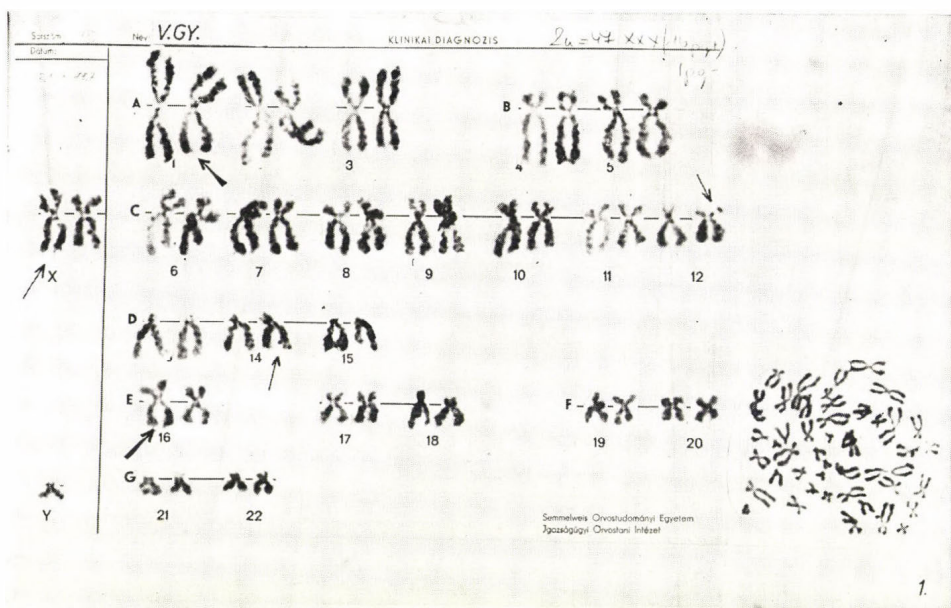 Név: V.GY.
KLINIKAI DIAGNOZIS
Dátum:
A
B
1
3
4
5
C
X
6
7
8
9
10
11
12
D
14
15
E
F
16
17
18
19
20
G
Y
21
22
Semmelweis Orvostudományi Egyetem
Igazságügyi Orvostani Intézet
1.